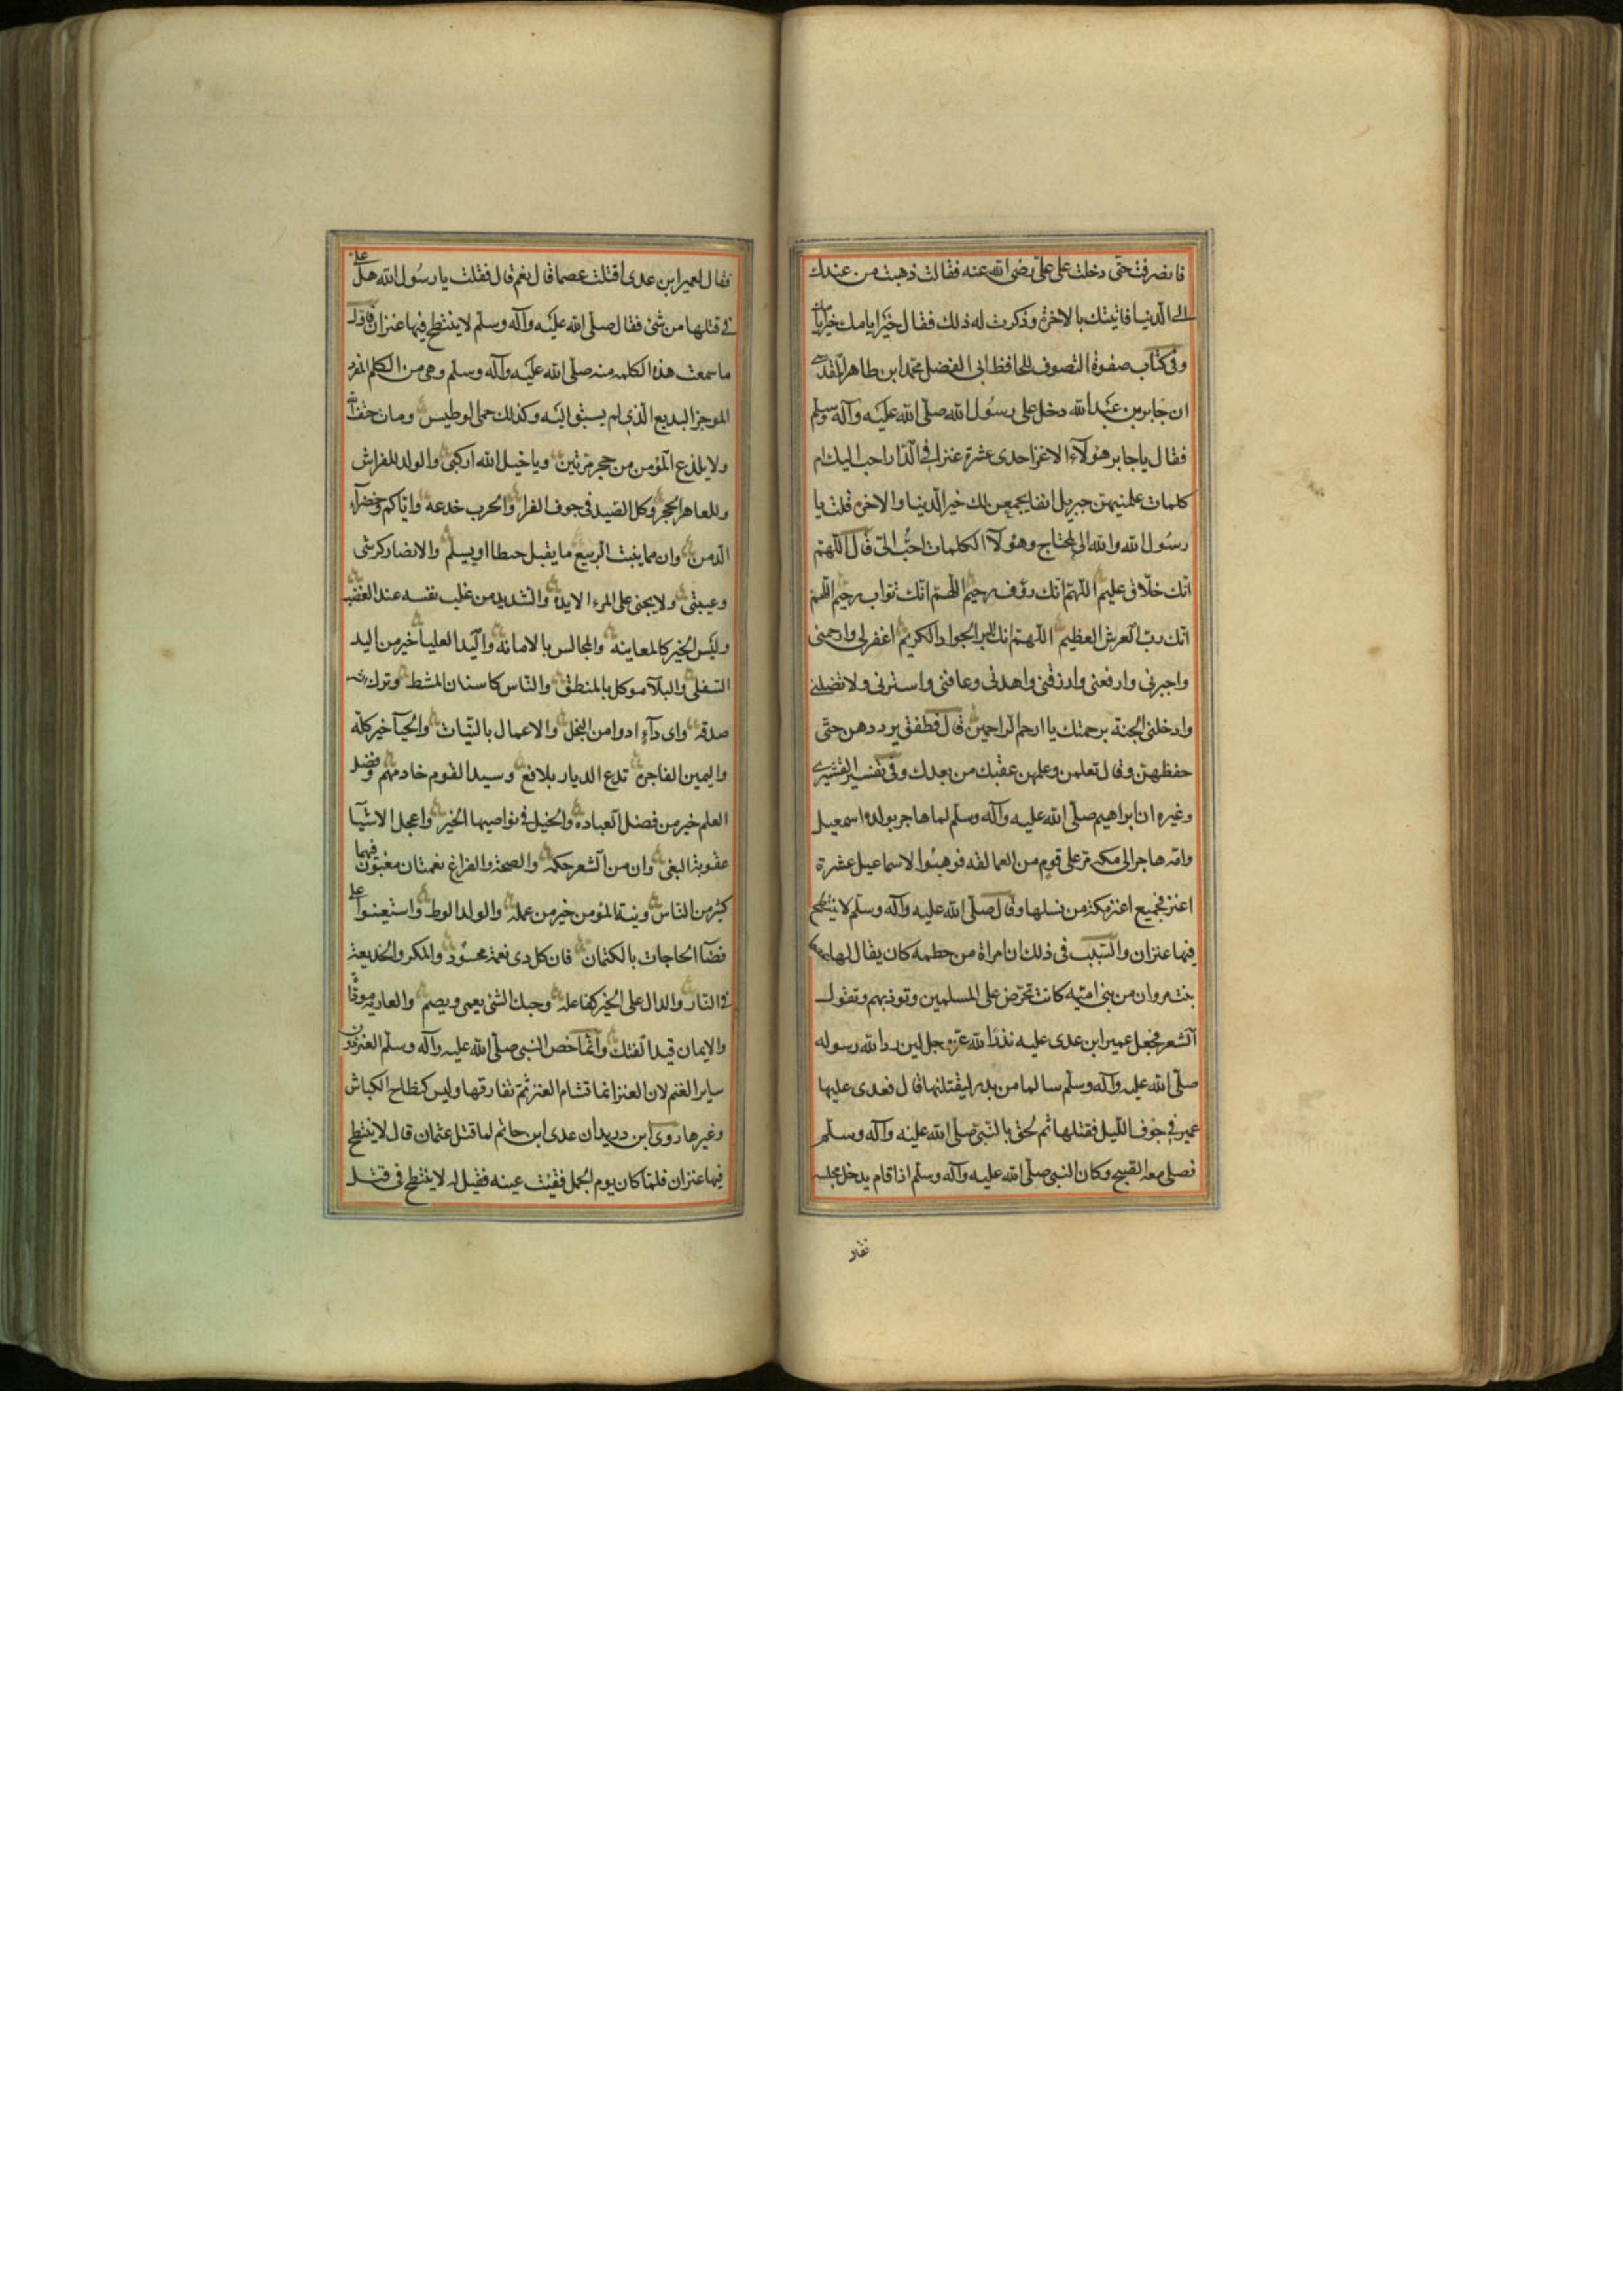 فانصرفت حتى دخلت على علىّ رضى الله عنه فقالت ذهبت من عندك
الى الدنيا فاتيتك بالاخرة وذكرت له ذلك فقال خير ايامك خير ايامك
وفى كتاب صفوة التصوف للحافظ ابى الفضل محمد ابن طاهر المقدسى
ان جابر بن عبد الله دخل على رسول الله صلى الله عليه وآله وسلم
فقال يا جابر هؤلاء الاعنز احدى عشرة عنزا فى الدار احب اليك ام
كلمات علمنيهن جبريل انفا يجمعن لك خير الدنيا والاخرة قلت يا
رسول الله والله انى لمحتاج وهؤلاء الكلمات احبّ الىّ قال اللهم
انك خلاق عليم اللهم انك رؤف رحيم اللهم انك تواب رحيم اللهم
انك رب العرش العظيم اللهم انك البر الجواد الكريم اغفر لى وارحمنى
واجبرنى وارفعنى وارزقنى واهدنى وعافنى واسترنى ولا تضلنى
وادخلنى الجنة برحمتك يا ارحم الراحمين قال فطفق يرددهن حتى
حفظهن وقال تعلمهن وعلمهن عقبك من بعدك وفى تفسير القشيرى
وغيره ان ابراهيم صلى الله عليه وآله وسلم لما هاجر بولده اسمعيل
وامه هاجر الى مكة مر على قوم من العمالقه فوهبوا لاسماعيل عشرة
اعنز فجميع اعنز مكة من نسلها وقال صلى الله عليه وآله وسلم لا ينتطح
فيها عنزان والسبب فى ذلك ان امراة من خطمه كان يقال لها عصما
بنت مروان من بنى اميه كانت تحرض على المسلمين وتوذيهم وتقول
الشعر فجعل عمير ابن عدى عليه نذرا لله عز وجل لين رد الله رسوله
صلى الله عليه وآله وسلم سالما من بدر ليقتلنها قال فعدى عليها
عمير فى جوف الليل فقتلها ثم لحق بالنبى صلى الله عليه وآله وسلم
فصلى معه الصبح وكان النبى صلى الله عليه وآله وسلم اذا قام يدخل مجلسه
فقال
فقال لعمير ابن عدى اقتلت عصما قال نعم قال فقلت يا رسول الله هل على
فى قتلها من شئ فقال صلى الله عليه وآله وسلم لا ينتطح فيها عنزان فاول
ما سمعت هذه الكلمه منه صلى الله عليه وآله وسلم وهى من الكلم المفرد
الموجز البديع الذى لم يسبق اليه وكذلك حمى الوطيس ومات حتف انفه
ولا يلدغ المؤمن من جحر مرتين ويا خيل الله اركبى والولد للفراش
وللعاهر الحجر وكل الصيد فى جوف الفرا والحرب خدعه واياكم وخضرآء
الدمن وان مما ينبت الربيع ما يقتل حبطا او يسلم والانصار كرشى
وعيبتى ولا يجنى على المرء الا يده والشديد من غلب نفسه عند الغضب
وليس الخبر كالمعاينة والمجالس بالامانة واليد العليا خير من اليد
السفلى والبلآ موكل بالمنطق والناس كاسنان المشط وترك الشر
صدقه واى دآء ادوا من البخل والاعمال بالنيات والحيآ خير كله
واليمين الفاجره تدع الديار بلاقع وسيد القوم خادمهم وفضل
العلم خير من فضل العباده والخيل فى نواصيها الخير واعجل الاشيآ
عقوبة البغى وان من الشعر حكمه والصحة والفراغ نعمتان مغبون فيهما
كثير من الناس ونية المؤمن خير من عمله والولد الوط واستعينوا على
قضآ الحاجات بالكتمان فان كل ذى نعمة محسود والمكر والخديعة
فى النار والدال على الخير كفاعله وحبك الشئ يعمى ويصم والعاريه موداة
والايمان قيد الفتك وانما خص النبى صلى الله عليه وآله وسلم العنز دون
ساير الغنم لان العنز انما تشام العنز ثم تفارقها وليس كنطاح الكباش
وغيرها روى ابن دريد ان عدى ابن حاتم لما قتل عثمان قال لا ينتطح
فيها عنزان فلما كان يوم الجمل فقيت عينه فقيل له لا ينتطح فى قتل